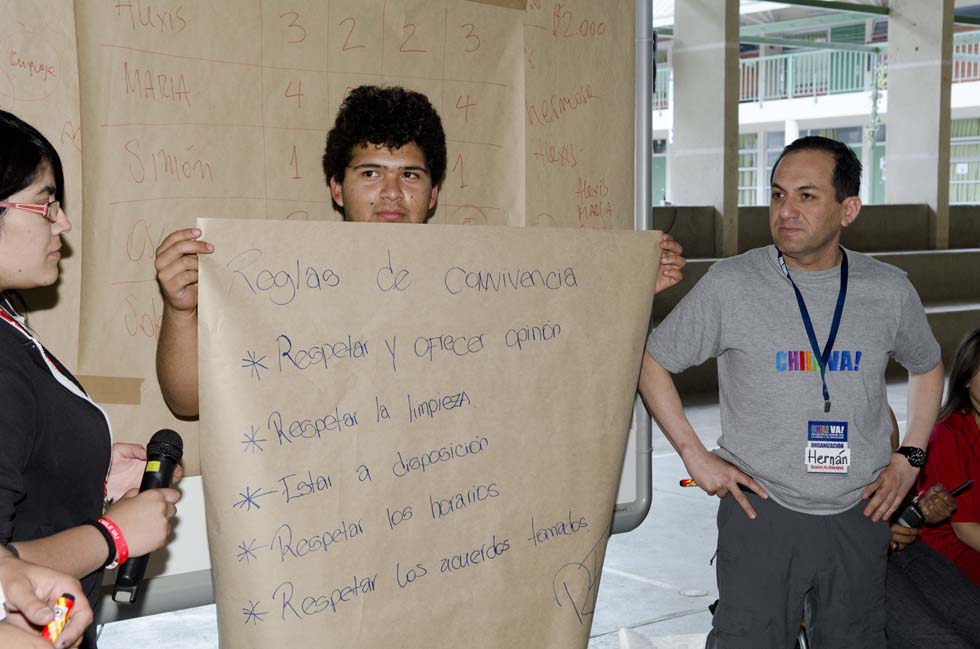 Alexis 3 2 2 3
$2.000
MARIA 4 4
hermosa
Simón 1 1
Alexis
Alexis
MARIA
Reglas de convivencia
* Respetar y ofrecer opinión
* Respetar la limpieza.
* Estar a disposición
* Respetar los horarios
* Respetar los acuerdos tomados.
CHILE VA!
CHILE VA!
ORGANIZACIÓN
Hernán